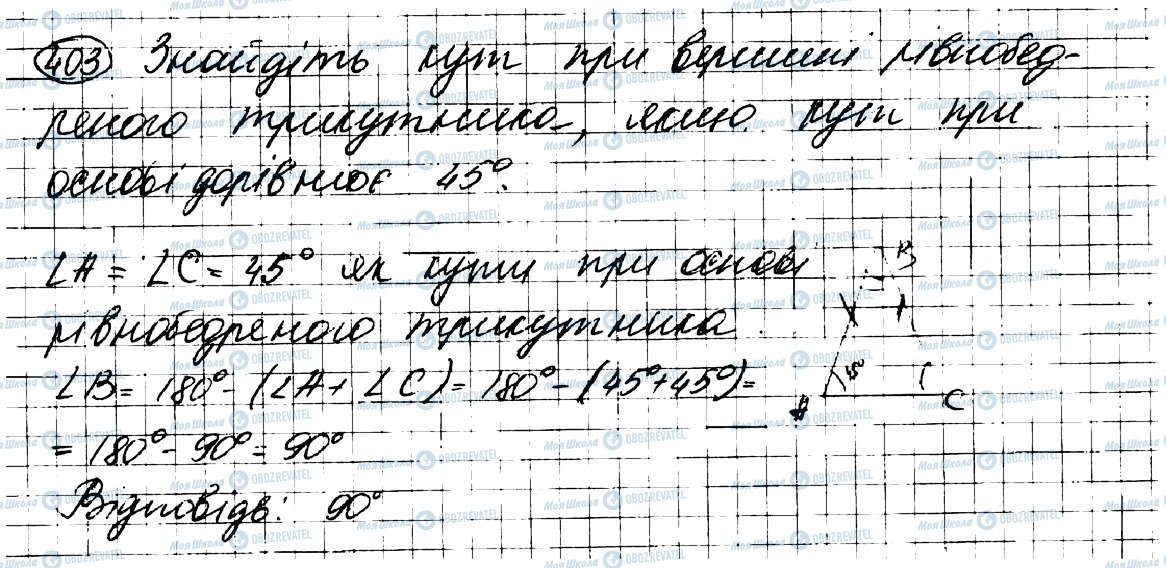 403 Знайдіть кут при вершині рівнобед-
реного трикутника, якщо кут при
основі дорівнює 45°.
∠A = ∠C = 45° як кути при основі
рівнобедреного трикутника
∠B = 180° - (∠A + ∠C) = 180° - (45° + 45°) =
= 180° - 90° = 90°
Відповідь: 90°
B
45°
A
C